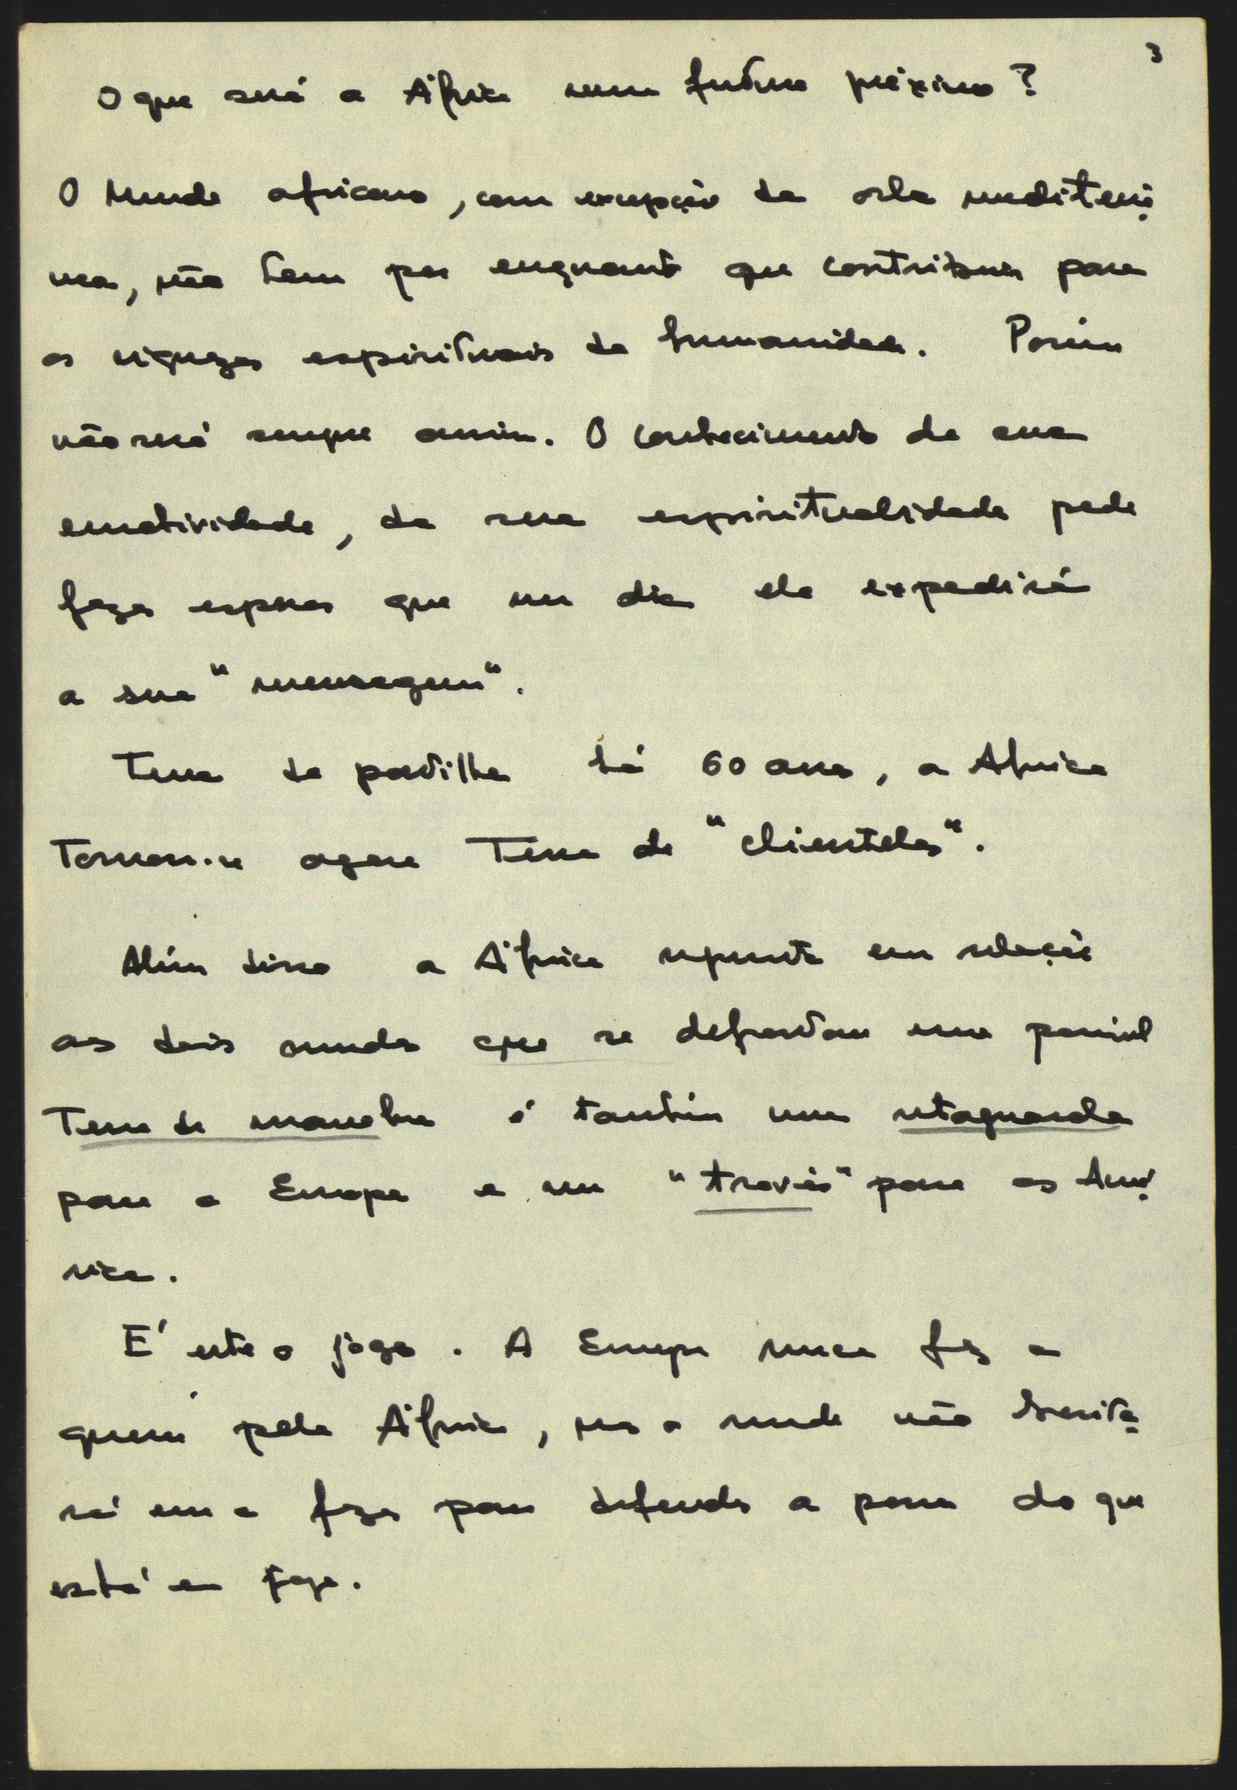 3
O que será a África num futuro próximo?
O Mundo africano, com excepção da orla mediterrâ
nea, não tem por enquanto que contribuir para
as riquezas espirituais da humanidade. Porém
não será sempre assim. O conhecimento da sua
emotividade, da sua espiritualidade pode
fazer esperar que um dia ela expedirá
a sua "mensagem".
Terra de partilha há 60 anos, a Africa
tornou-se agora terra de "clientelas".
Além disso a África representa em relação
aos dois mundos que se defrontam uma possível
Terra de manobra é também uma retaguarda
para a Europa e um "través" para as Amé
rica.
É este o jogo. A Europa nunca fez a
guerra pela África, mas o mundo não hesita
rá em a fazer para defender a posse do que
está em jogo.